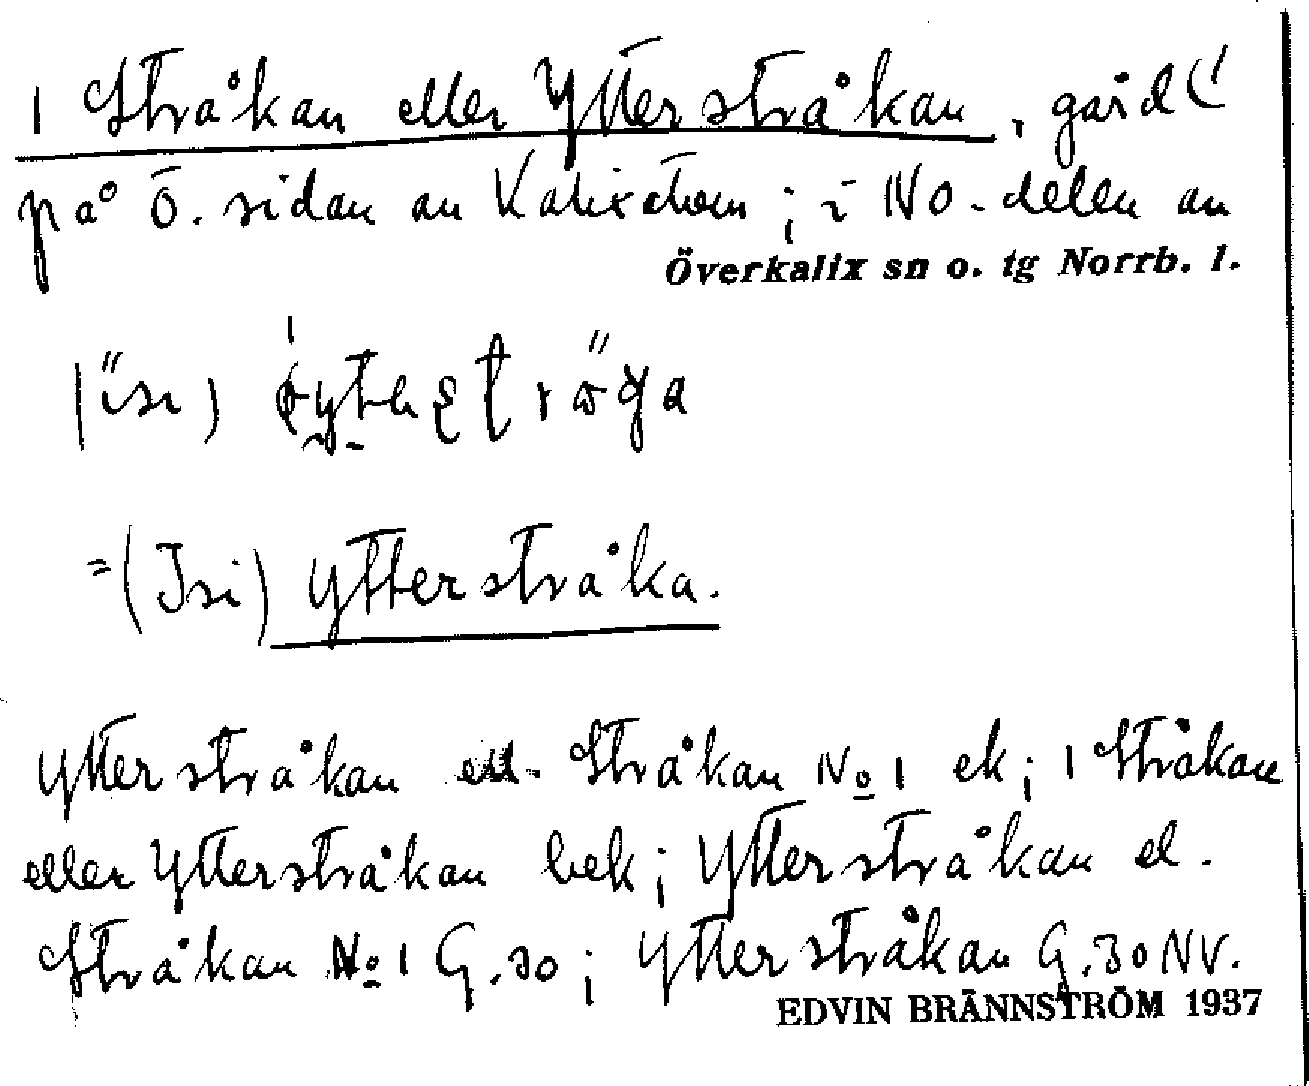 1 Stråkan eller Ytterstråkan, gård
på ö. sidan av Kalixälven; i NO-delen av
Överkalix sn o. tg Norrb. l.
=(Isi) Ytterstråka.
Ytterstråkan ell. Stråkan No 1 ek; 1 Stråkan
eller Ytterstråkan bek; Ytterstråkan el.
Stråkan No 1 G.30; Ytterstråkan G.30 NV.
EDVIN BRÄNNSTRÖM 1937